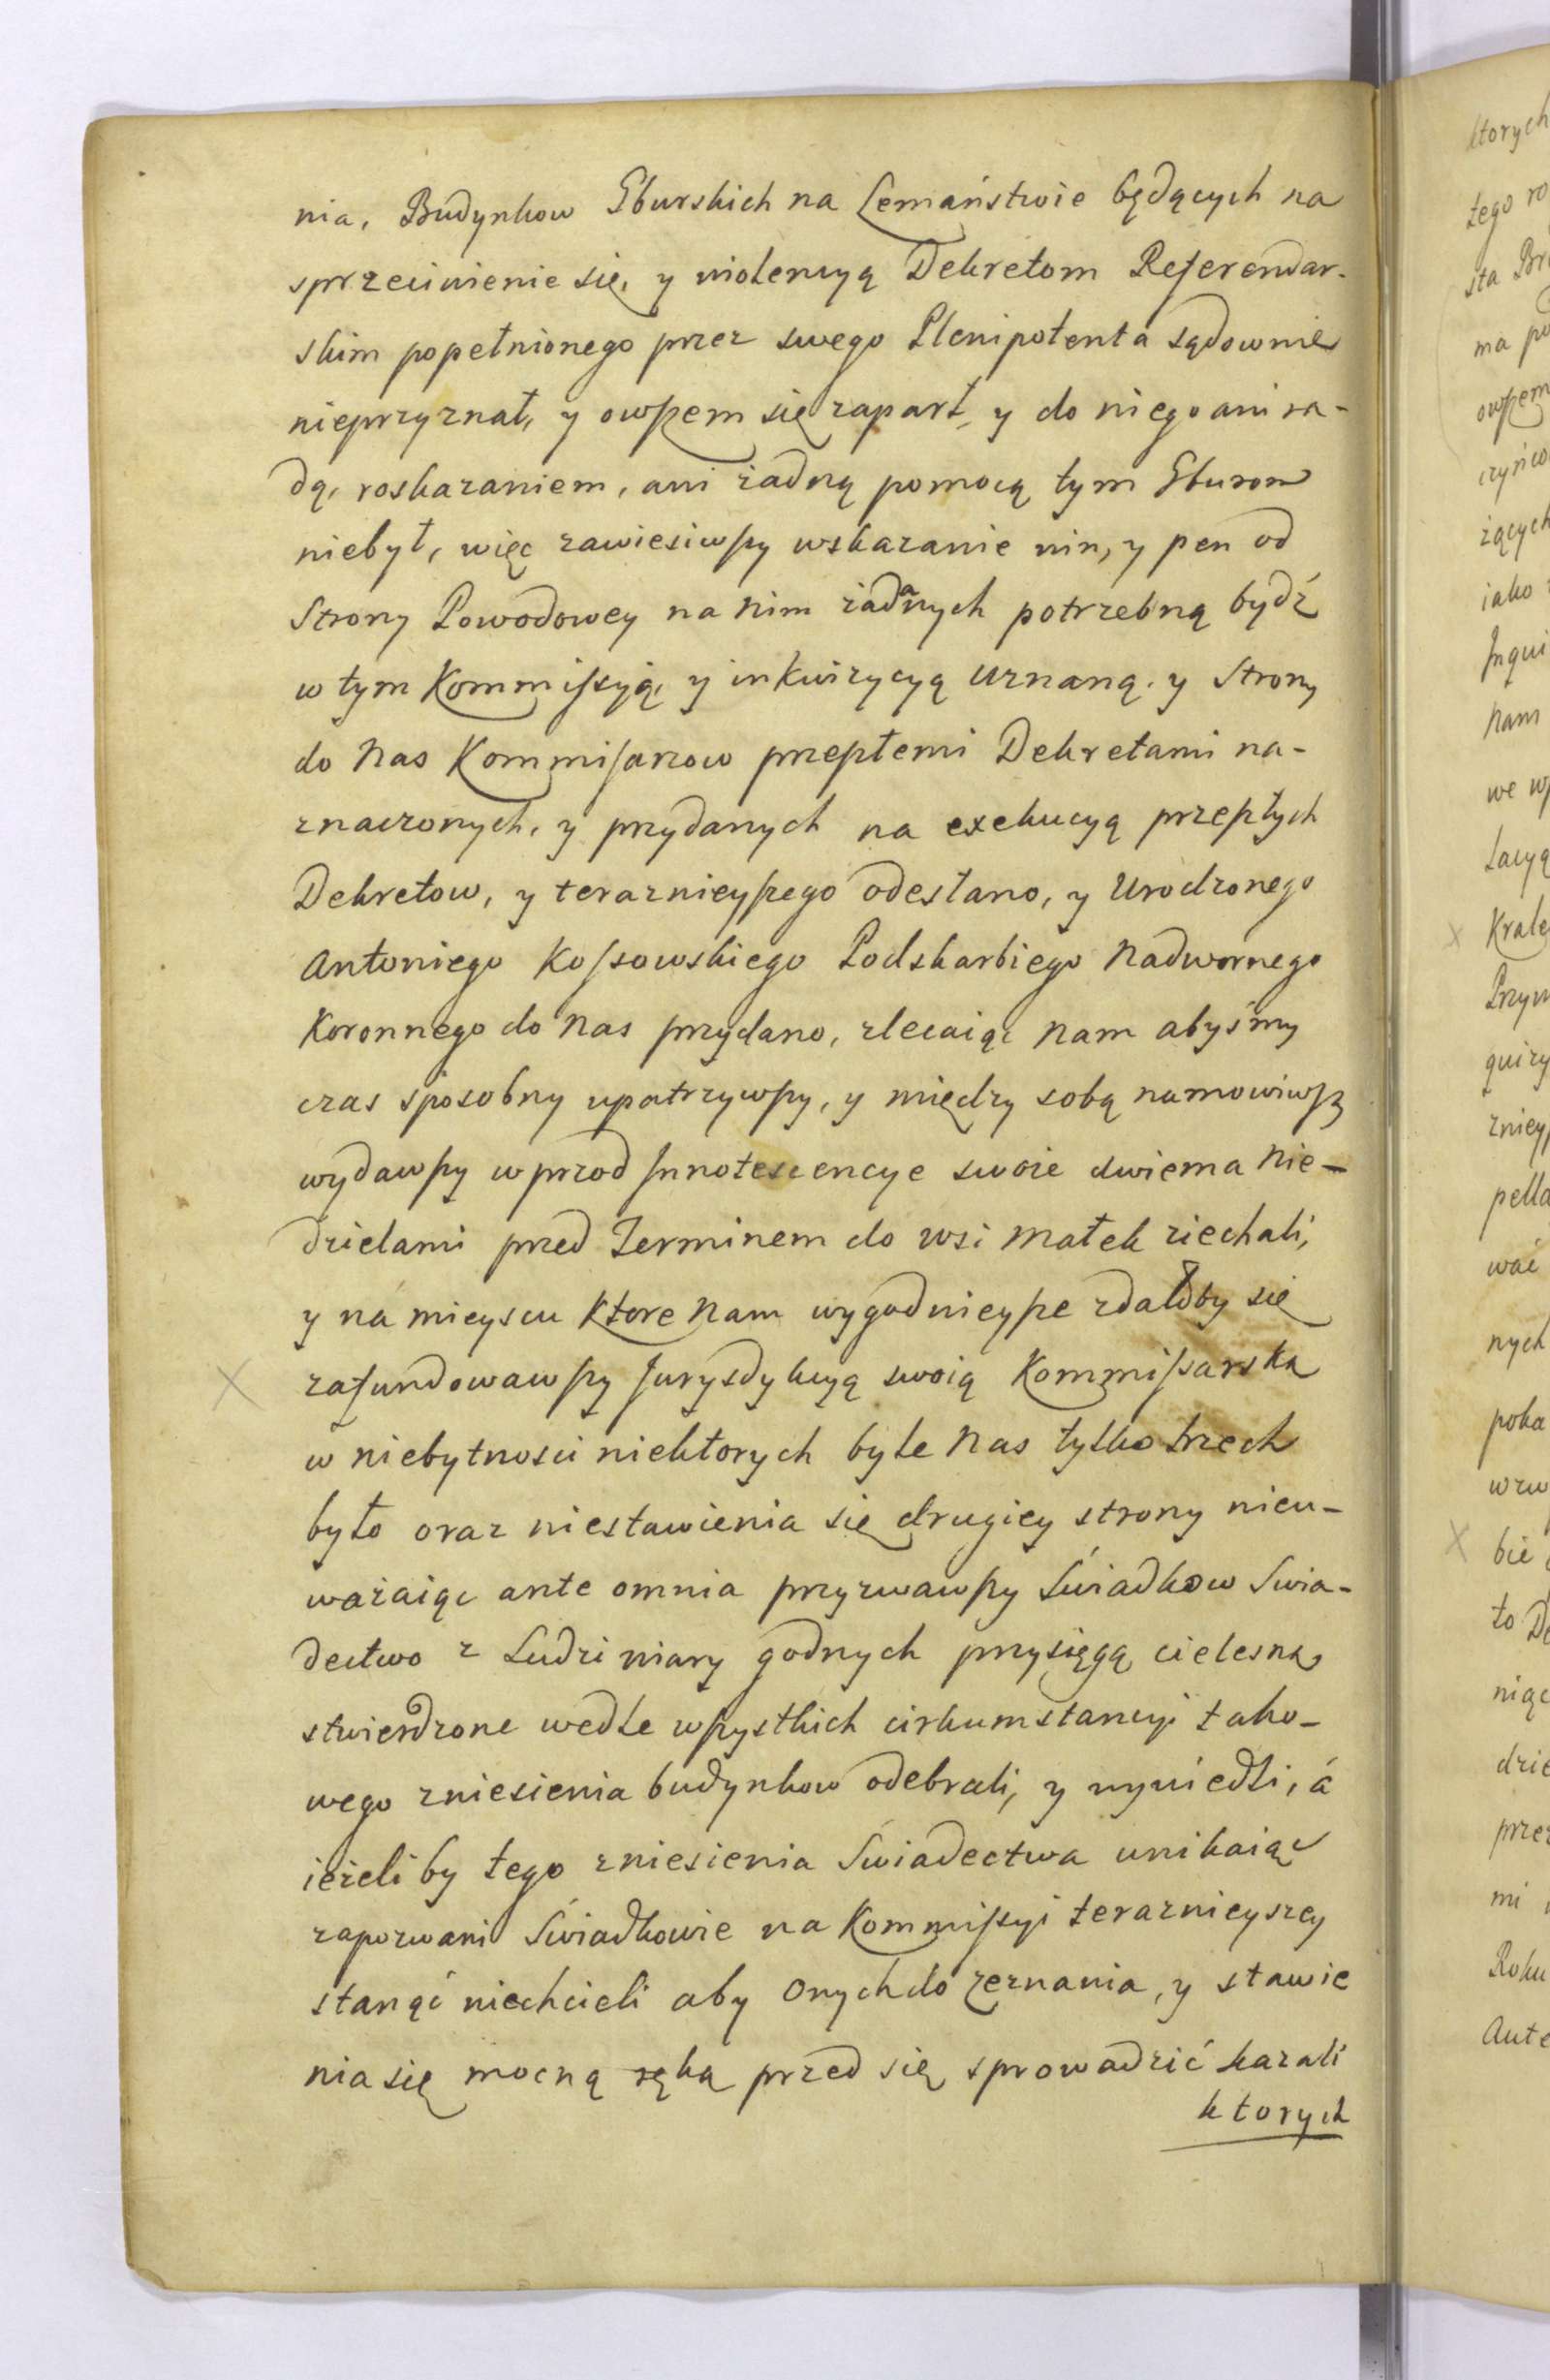 nia, Budynkow Gburskich na Lemaństwie będących na
sprzeciwienie się, y violencyą Dekretom Referendar-
skim popełnionego przez swego Plenipotenta sądownie
nieprzyznał, y owszem się zaparł, y do niego ani ra-
dą, roskazaniem, ani żadną pomocą tym Gburom
niebył, więc zawiesiwszy wskazanie win, y pen od
Strony Powodowey na nim żądanych potrzebną bydź
w tym Kommissyią, y inkwizycyą uznaną. y Strony
do Nas Kommisarzow przeszłemi Dekretami na-
znaczonych, y przydanych na exekucyą przeszłych
Dekretow, y teraznieyszego odesłano, y Urodzonego
Antoniego Kossowskiego Podskarbiego Nadwornego
Koronnego do Nas przydano, zlecaiąc Nam abyśmy
czas sposobny upatrzywszy, y między sobą namowiwszy
wydawszy wprzod Innotescencye swoie dwiema Nie-
dzielami przed Terminem do wsi Małek ziechali,
y na mieyscu Ktore Nam wygodnieysze zdałoby się
zafundowawszy Jurysdykcyą swoią Kommissarska
w niebytnosci niektorych byle Nas tylko trzech
było oraz niestawienia się drugiey strony nieu-
ważaiąc ante omnia przyzwawszy Świadkow Swia-
dectwo z Ludzi wiary godnych przysięgą cielesną
stwierdzone wedle wszystkich cirkumstancyi tako-
wego zniesienia budynkow odebrali, y wywiedli, á
ieżeli by tego zniesienia Swiadectwa unikaiąc
zapozwani Świadkowie na Kommissyi teraznieyszey
stanąć niechcieli aby Onych do zeznania, y stawie
nia się mocną ręką przed się sprowadzić kazali
ktorych
ktorych
tego
sta
ma
owszem
żących
iako
Inqui
Nam
we
lacyą
Przym
quizy
znieysz
pella
wać
nych
poka
bie
to
niąc
dzie
przez
mi
Roku
Ante